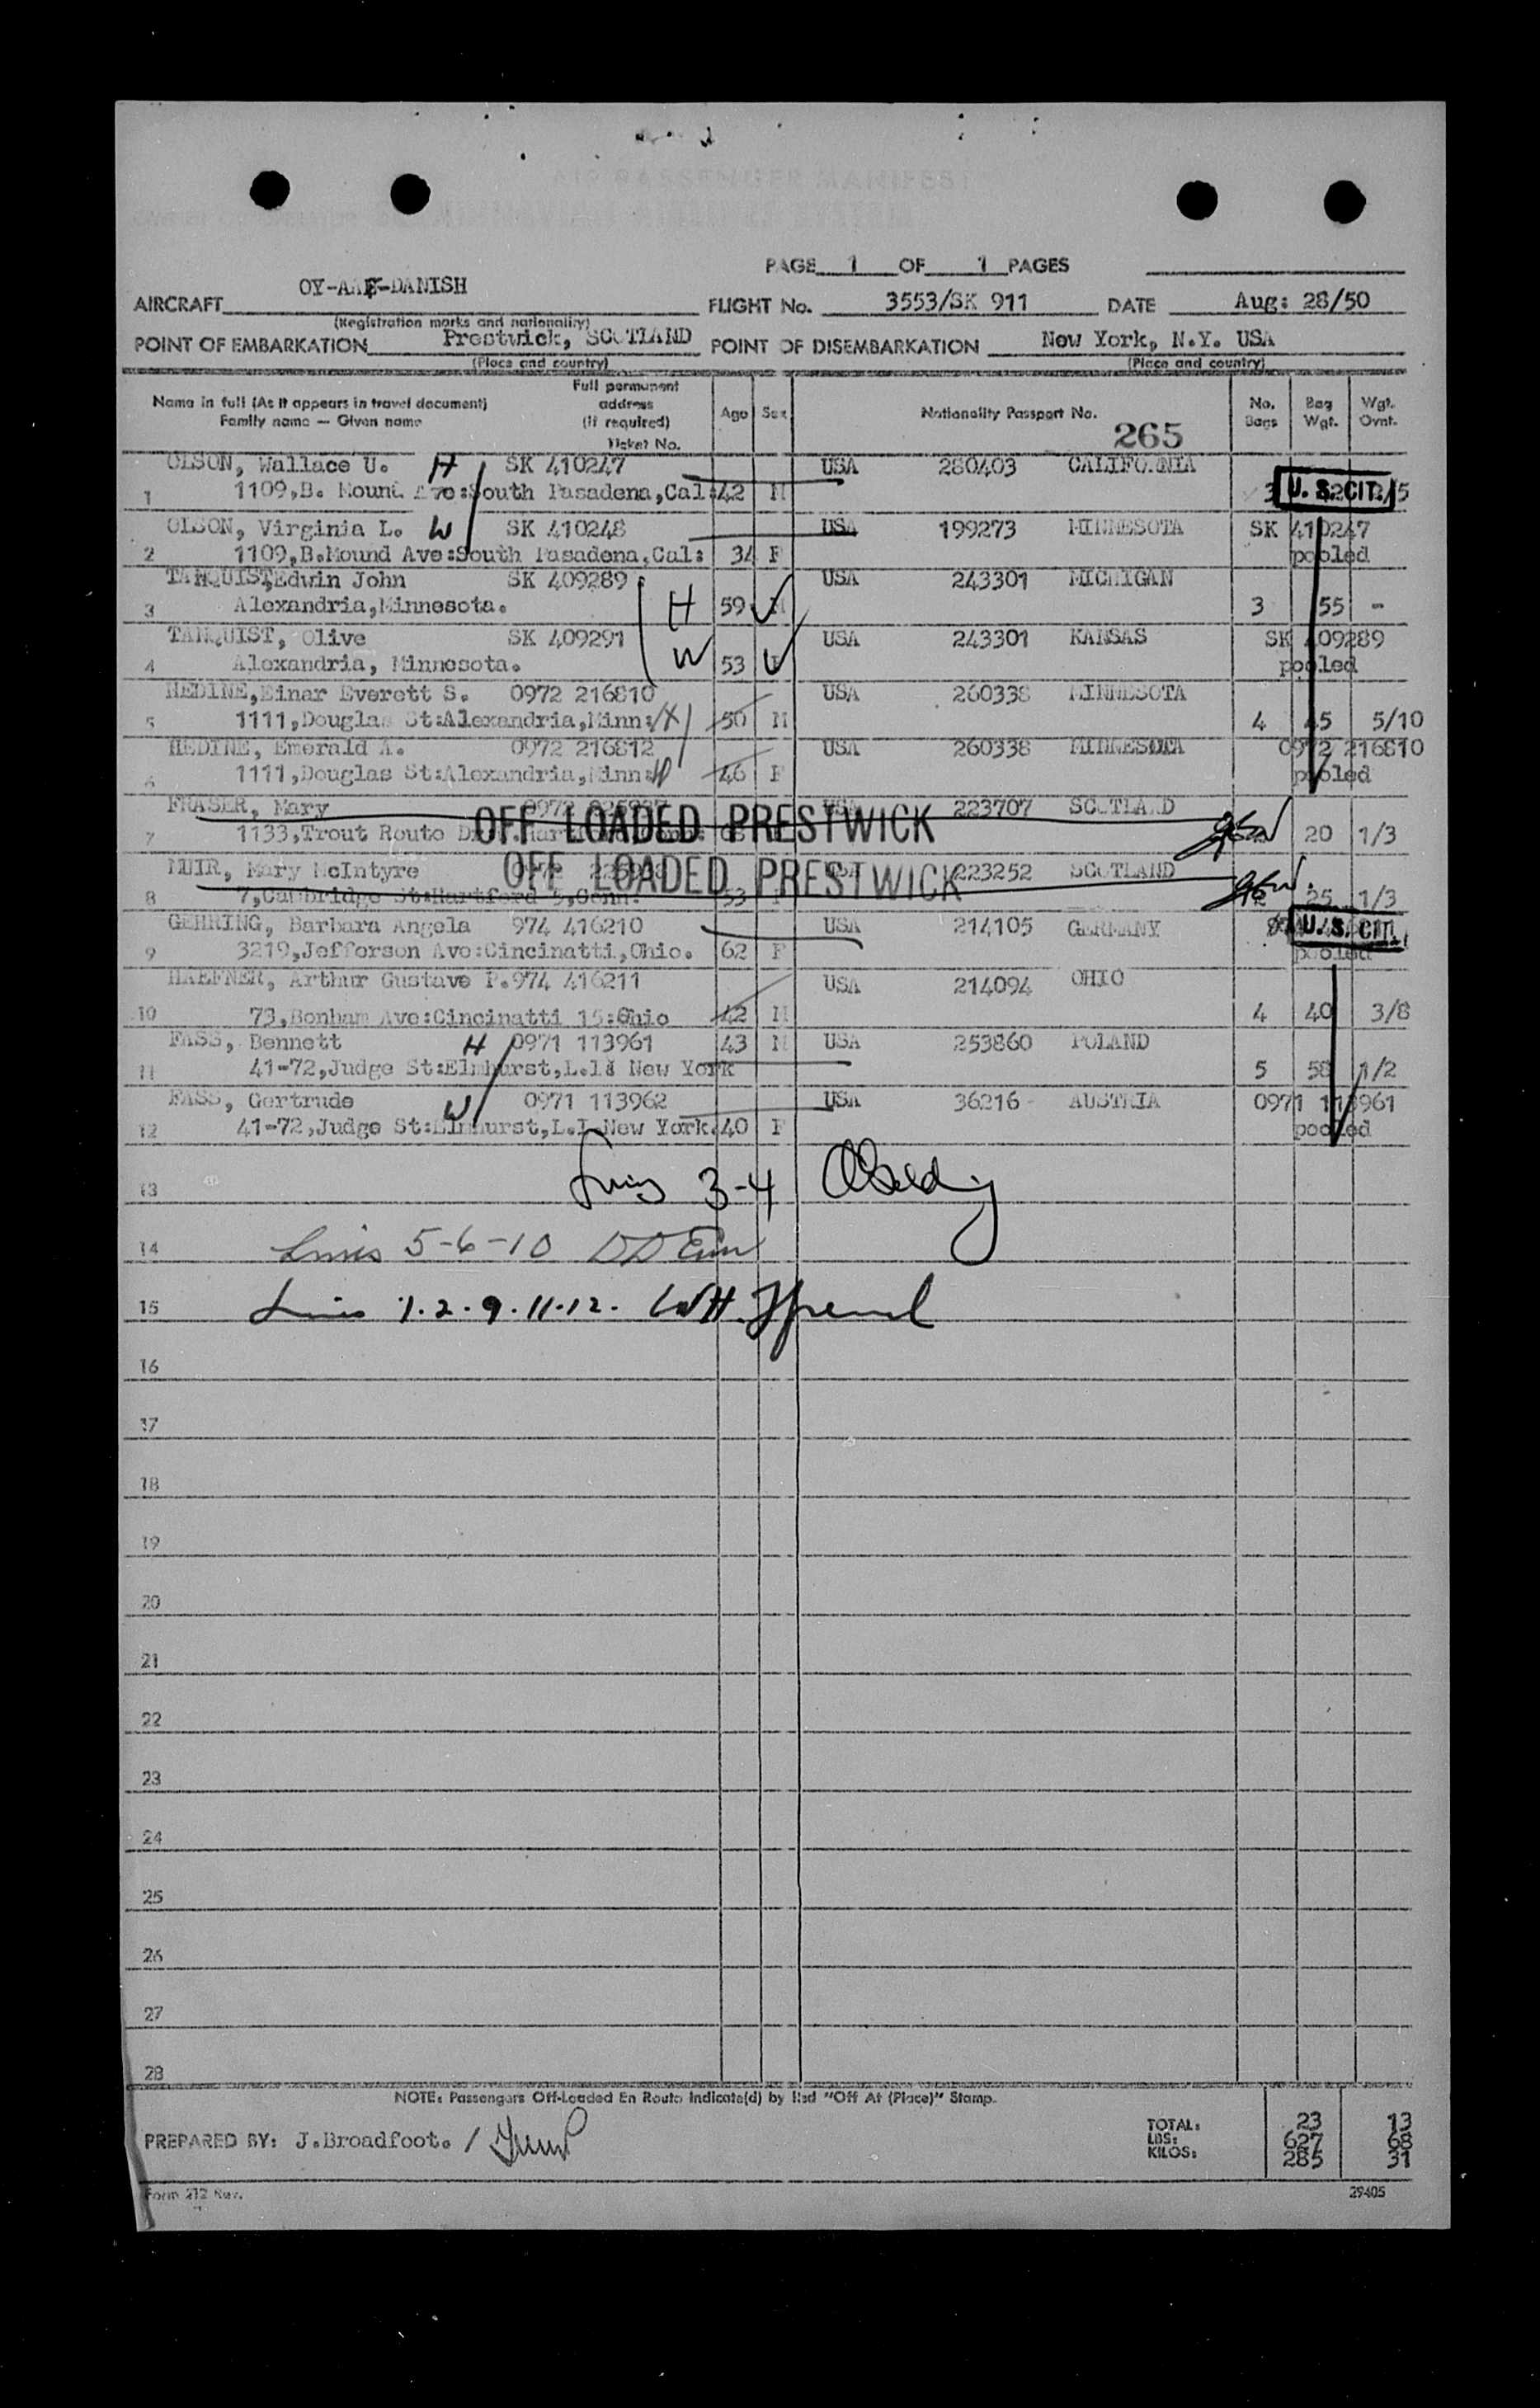 AIR PASSENGER MANIFEST
PAGE 1 OF 1 PAGES
AIRCRAFT OY-AAE-DANISH FLIGHT No. 3553/SK 911 DATE Aug: 28/50
(Registration marks and nationality)
POINT OF EMBARKATION Prestwick, SCOTLAND POINT OF DISEMBARKATION New York, N.Y. USA
(Place and country) (Place and country)
Name in full (As it appears in travel document) Family name — Given name Full permanent address (if required) Ticket No. Age Sex Nationality Passport No. 265 No. Bags Bag Wgt. Wgt. Ovnt.
OLSON, Wallace U. H SK 410247 USA 280403 CALIFORNIA
1 1109,B. Mount Ave:South Pasadena,Cal: 42 M 3 U.S. CIT.
OLSON, Virginia L. W SK 410248 USA 199273 MINNESOTA SK 410247
2 1109,B.Mound Ave:South Pasadena,Cal: 34 F pooled
TANQUIST,Edwin John SK 409289 USA 243301 MICHIGAN
3 Alexandria,Minnesota. H 59 M 3 55 -
TANQUIST, Olive SK 409291 USA 243301 KANSAS SK 409289
4 Alexandria, Minnesota. W 53 pooled
HEDINE,Einar Everett S. 0972 216810 USA 260338 MINNESOTA
5 1111,Douglas St:Alexandria,Minn: 50 M 4 45 5/10
HEDINE, Emerald A. 0972 216812 USA 260338 MINNESOTA 0972 216810
6 1111,Douglas St:Alexandria,Minn: 46 F pooled
FRASER, Mary 0972 USA 223707 SCOTLAND
OFF LOADED PRESTWICK
7 1133,Trout Route 20 1/3
MUIR, Mary McIntyre 223252 SCOTLAND
OFF LOADED PRESTWICK
8 7,Cambridge St:Hartford 5,Conn. 53 25 1/3
GEHRING, Barbara Angela 974 416210 USA 214105 GERMANY U.S. CIT.
9 3219,Jefferson Ave:Cincinatti,Ohio. 62 F pooled
HAEFNER, Arthur Gustave P.974 416211 USA 214094 OHIO
10 73,Bonham Ave:Cincinatti 15:Ohio 42 M 4 40 3/8
FASS, Bennett H 0971 113961 43 M USA 253860 POLAND
11 41-72,Judge St:Elmhurst,L.I: New York 5 58 1/2
FASS, Gertrude W 0971 113962 USA 36216 - AUSTRIA 0971 113961
12 41-72,Judge St:Elmhurst,L.I.New York. 40 F pooled
13 Lines 3-4
14 Lines 5-6-10
15 Lines 1.2.9.11.12. WH.
16
17
18
19
20
21
22
23
24
25
26
27
28
NOTE: Passengers Off-Loaded En Route Indicate(d) by Red "Off At (Place)" Stamp.
PREPARED BY: J.Broadfoot. /
TOTAL: 23 13
LBS: 627 68
KILOS: 285 31
Form 212 Rev. 29405